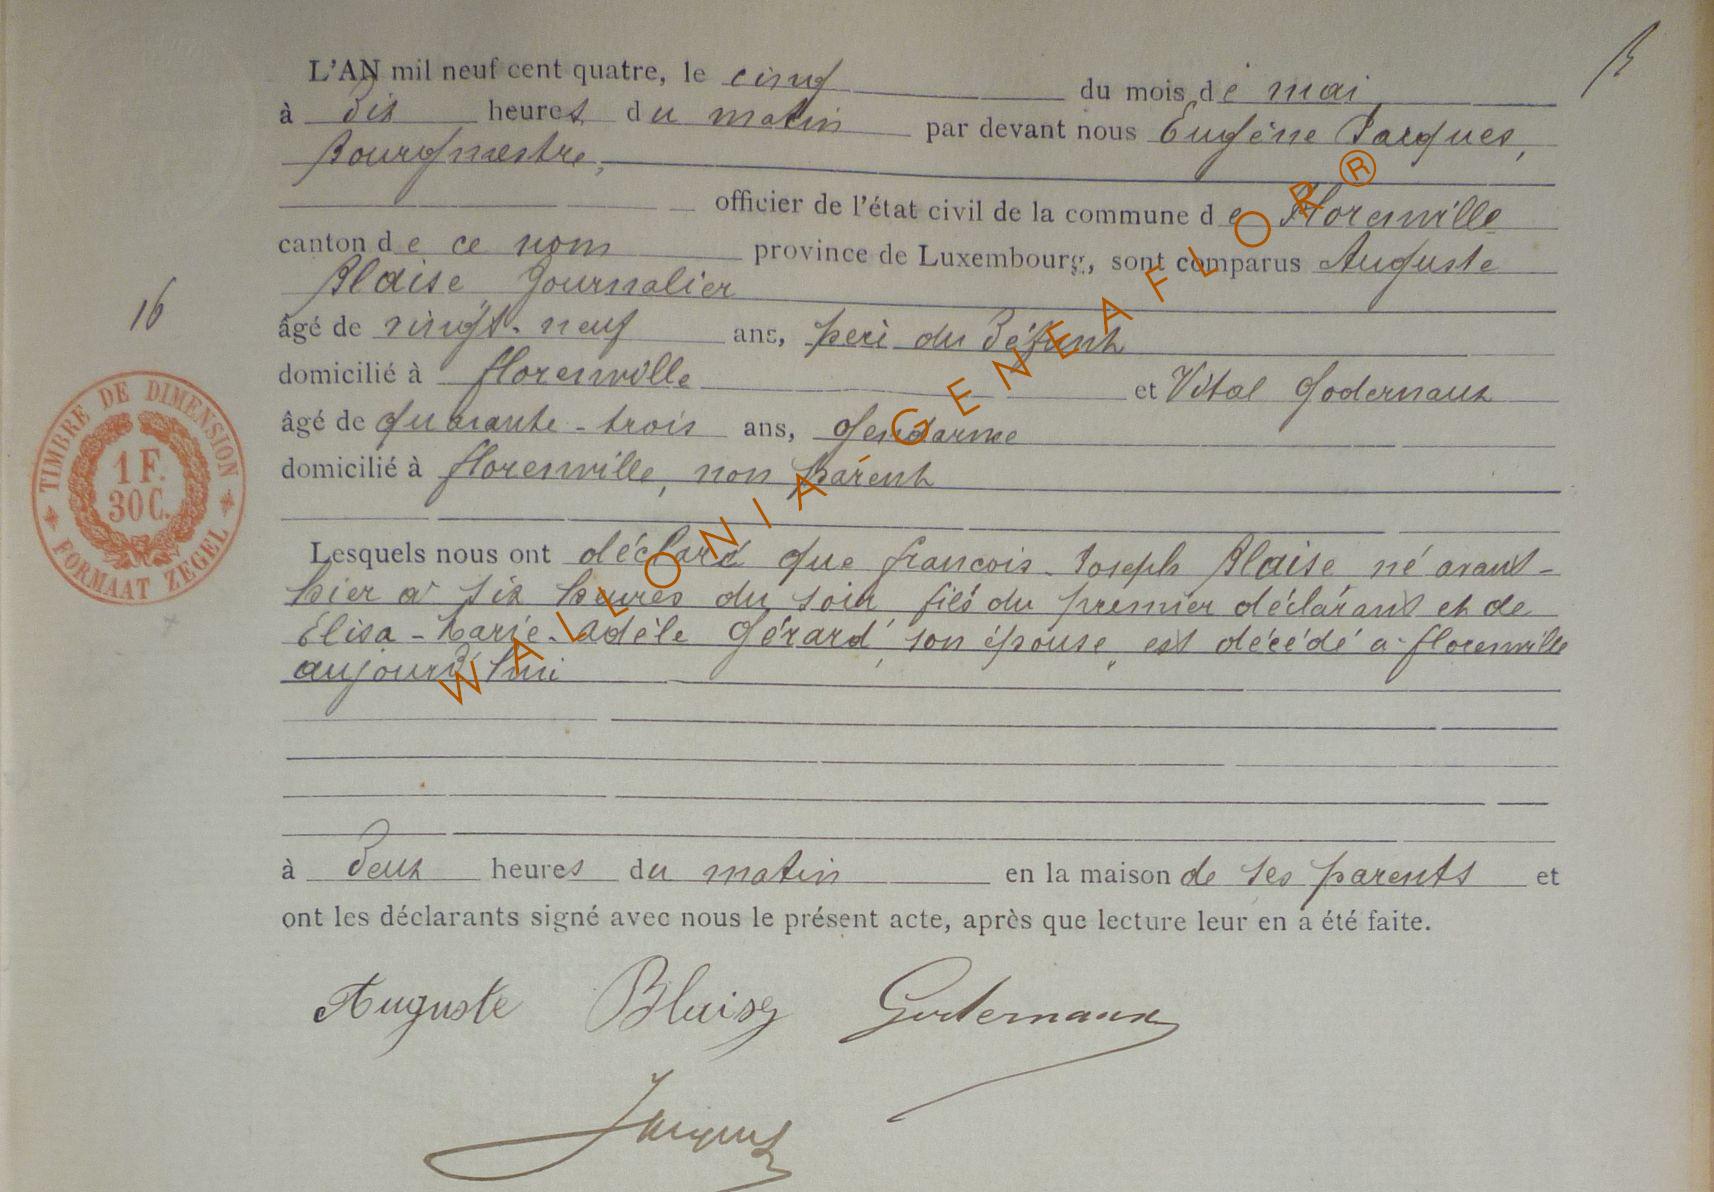 L'AN mil neuf cent quatre, le cinq du mois de mai
à dix heures du matin par devant nous Eugène Jacques,
Bourgmestre,
officier de l'état civil de la commune de Florenville
canton de ce nom province de Luxembourg, sont comparus Auguste
Blaise Journalier
16
âgé de vingt-neuf ans, père du défunt
domicilié à florenville et Vital Godernaux
âgé de quarante-trois ans, Gendarme
domicilié à florenville, non parent
Lesquels nous ont déclaré que francois-Joseph Blaise né avant-
hier à six heures du soir fils du premier déclarant et de
Elisa-Marie-Adèle Gérard, son épouse, est décédé à florenville
aujourd'hui
à deux heures du matin en la maison de ses parents et
ont les déclarants signé avec nous le présent acte, après que lecture leur en a été faite.
Auguste Blaise Godernaux
Jacques
TIMBRE DE DIMENSION
1 F.
30 C.
FORMAAT ZEGEL
WALLONIA GENEAFLOR®